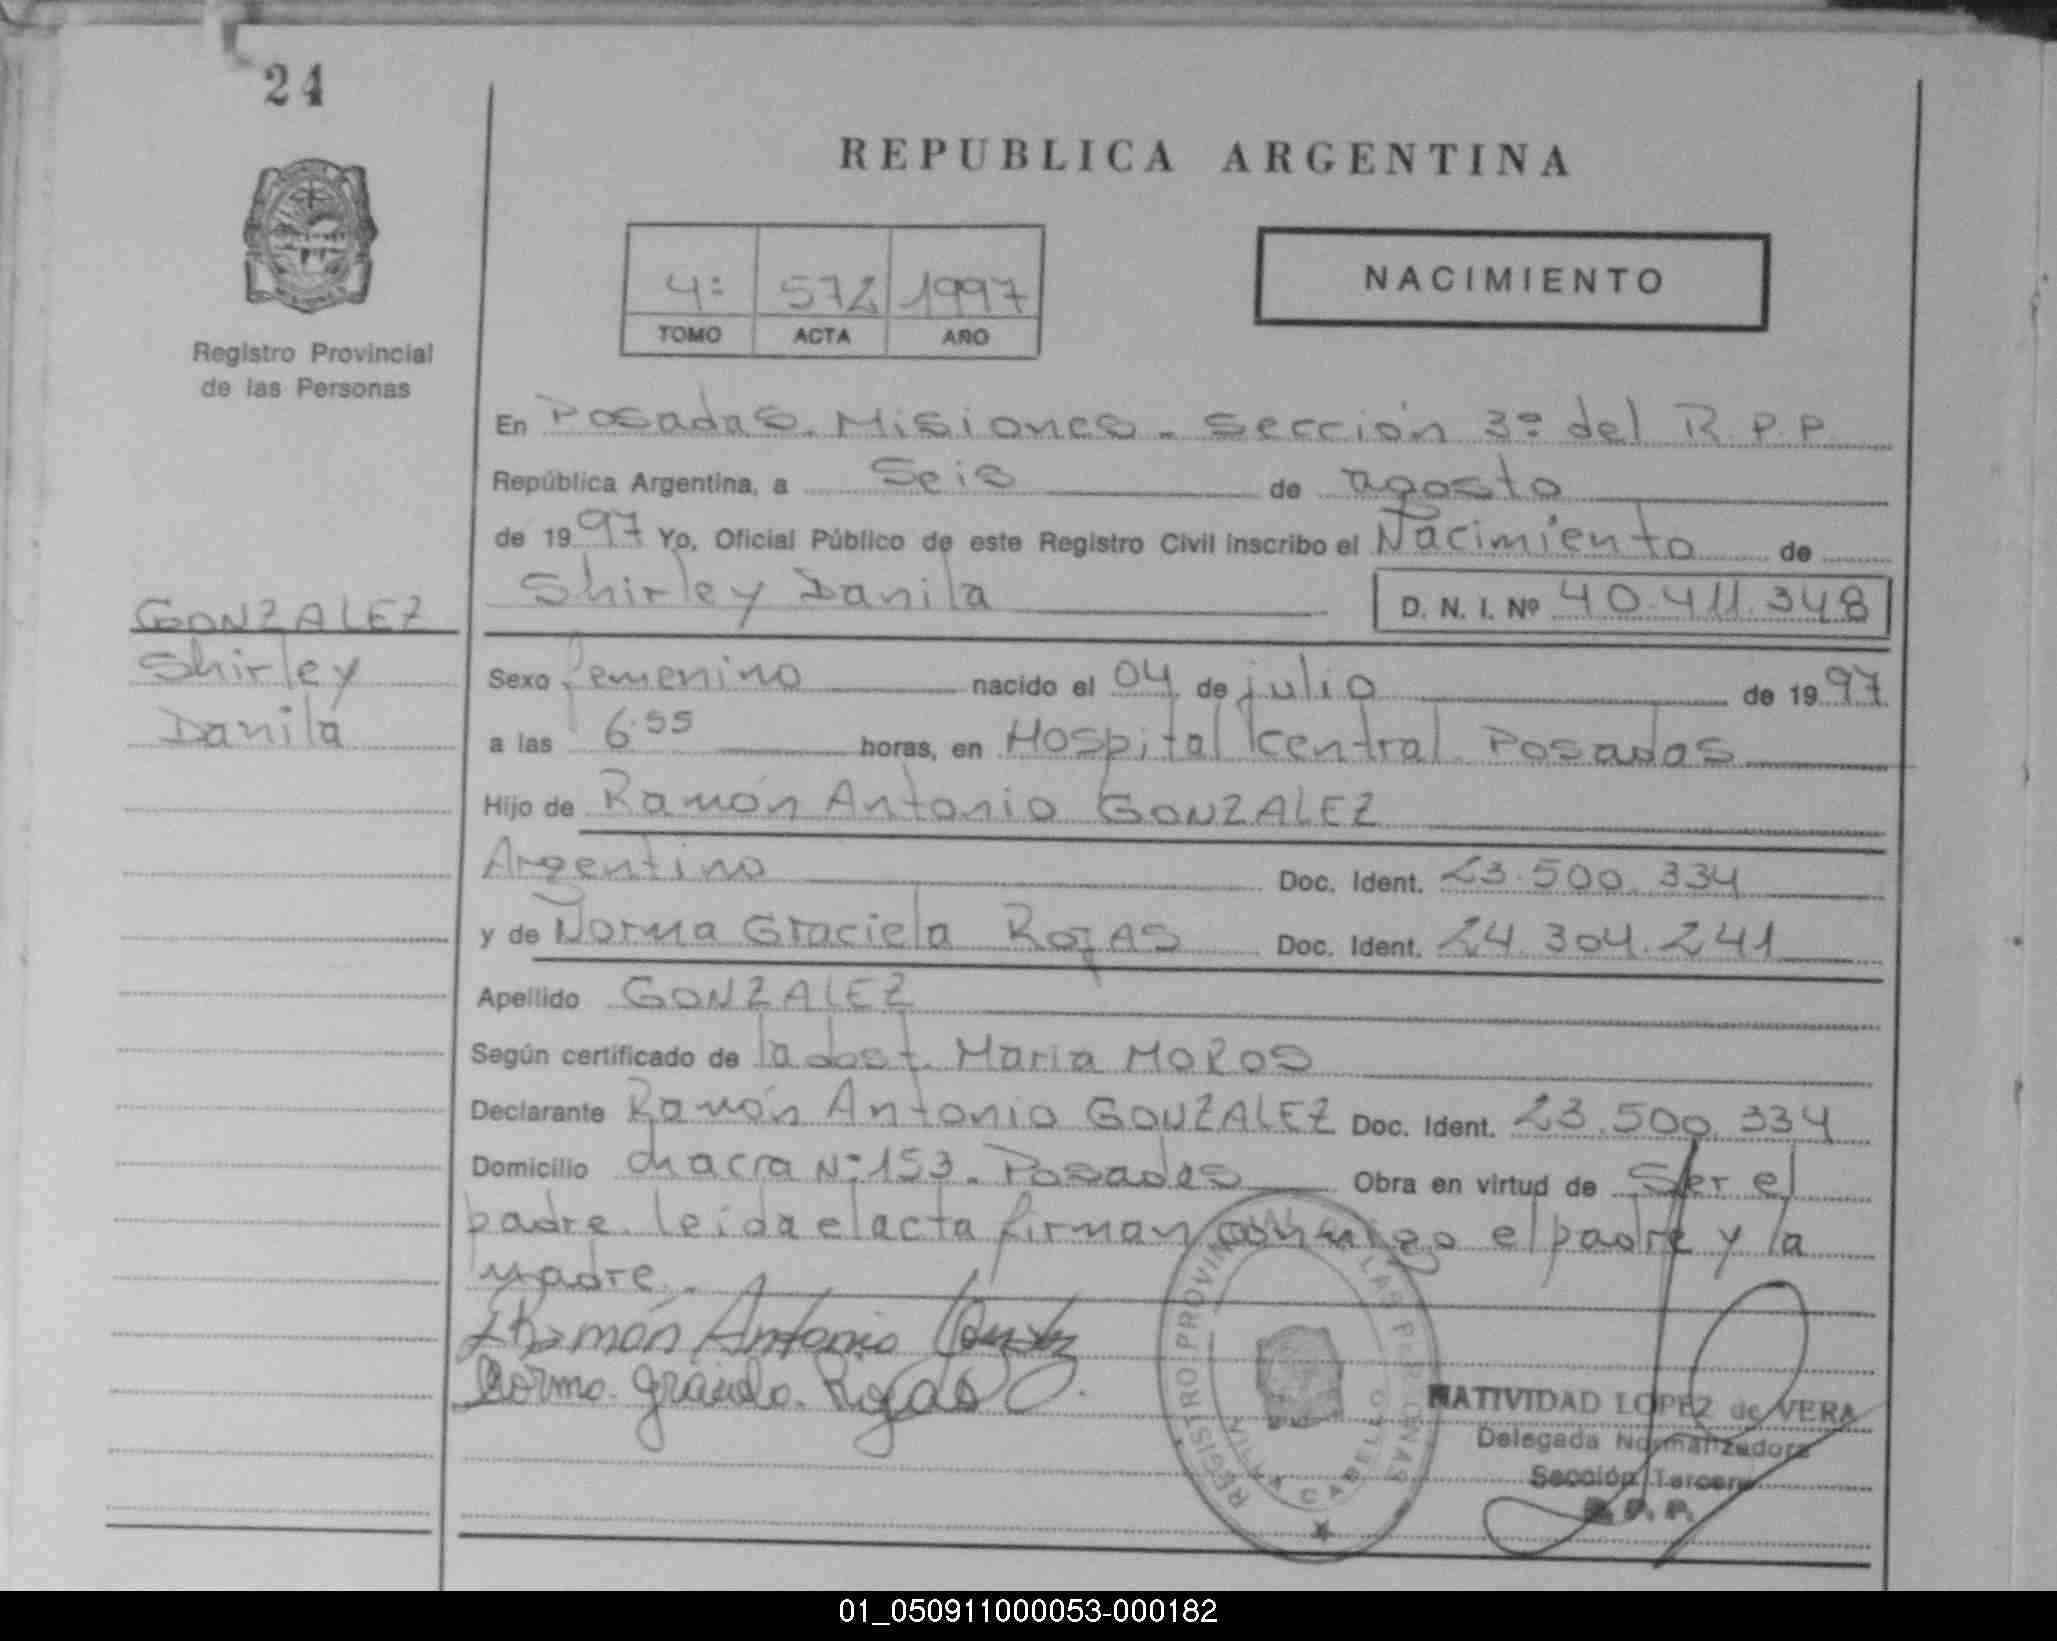 24
REPUBLICA ARGENTINA
4º 572 1997
TOMO ACTA AÑO
NACIMIENTO
Registro Provincial
de las Personas
En Posadas. Misiones. Sección 3º del R.P.P.
República Argentina, a Seis de agosto
de 1997 Yo, Oficial Público de este Registro Civil inscribo el Nacimiento de
Shirley Danila D. N. I. Nº 40.411.348
GONZALEZ
Shirley
Danila
Sexo femenino nacido el 04 de julio de 1997
a las 6.55 horas, en Hospital Central Posadas
Hijo de Ramón Antonio GONZALEZ
Argentino Doc. Ident. 23.500.334
y de Norma Graciela ROJAS Doc. Ident. 24.304.241
Apellido GONZALEZ
Según certificado de la obst. Maria MOROS
Declarante Ramón Antonio GONZALEZ Doc. Ident. 23.500.334
Domicilio chacra Nº 153. Posadas Obra en virtud de Ser el
padre. leida el acta firman conmigo el padre y la
madre.
Ramón Antonio
Rojas
REGISTRO PROVINCIAL DE LAS PERSONAS
CABELLO
NATIVIDAD LOPEZ de VERA
Delegada Normalizadora
Sección Tercera
R. P. P.
01_050911000053-000182